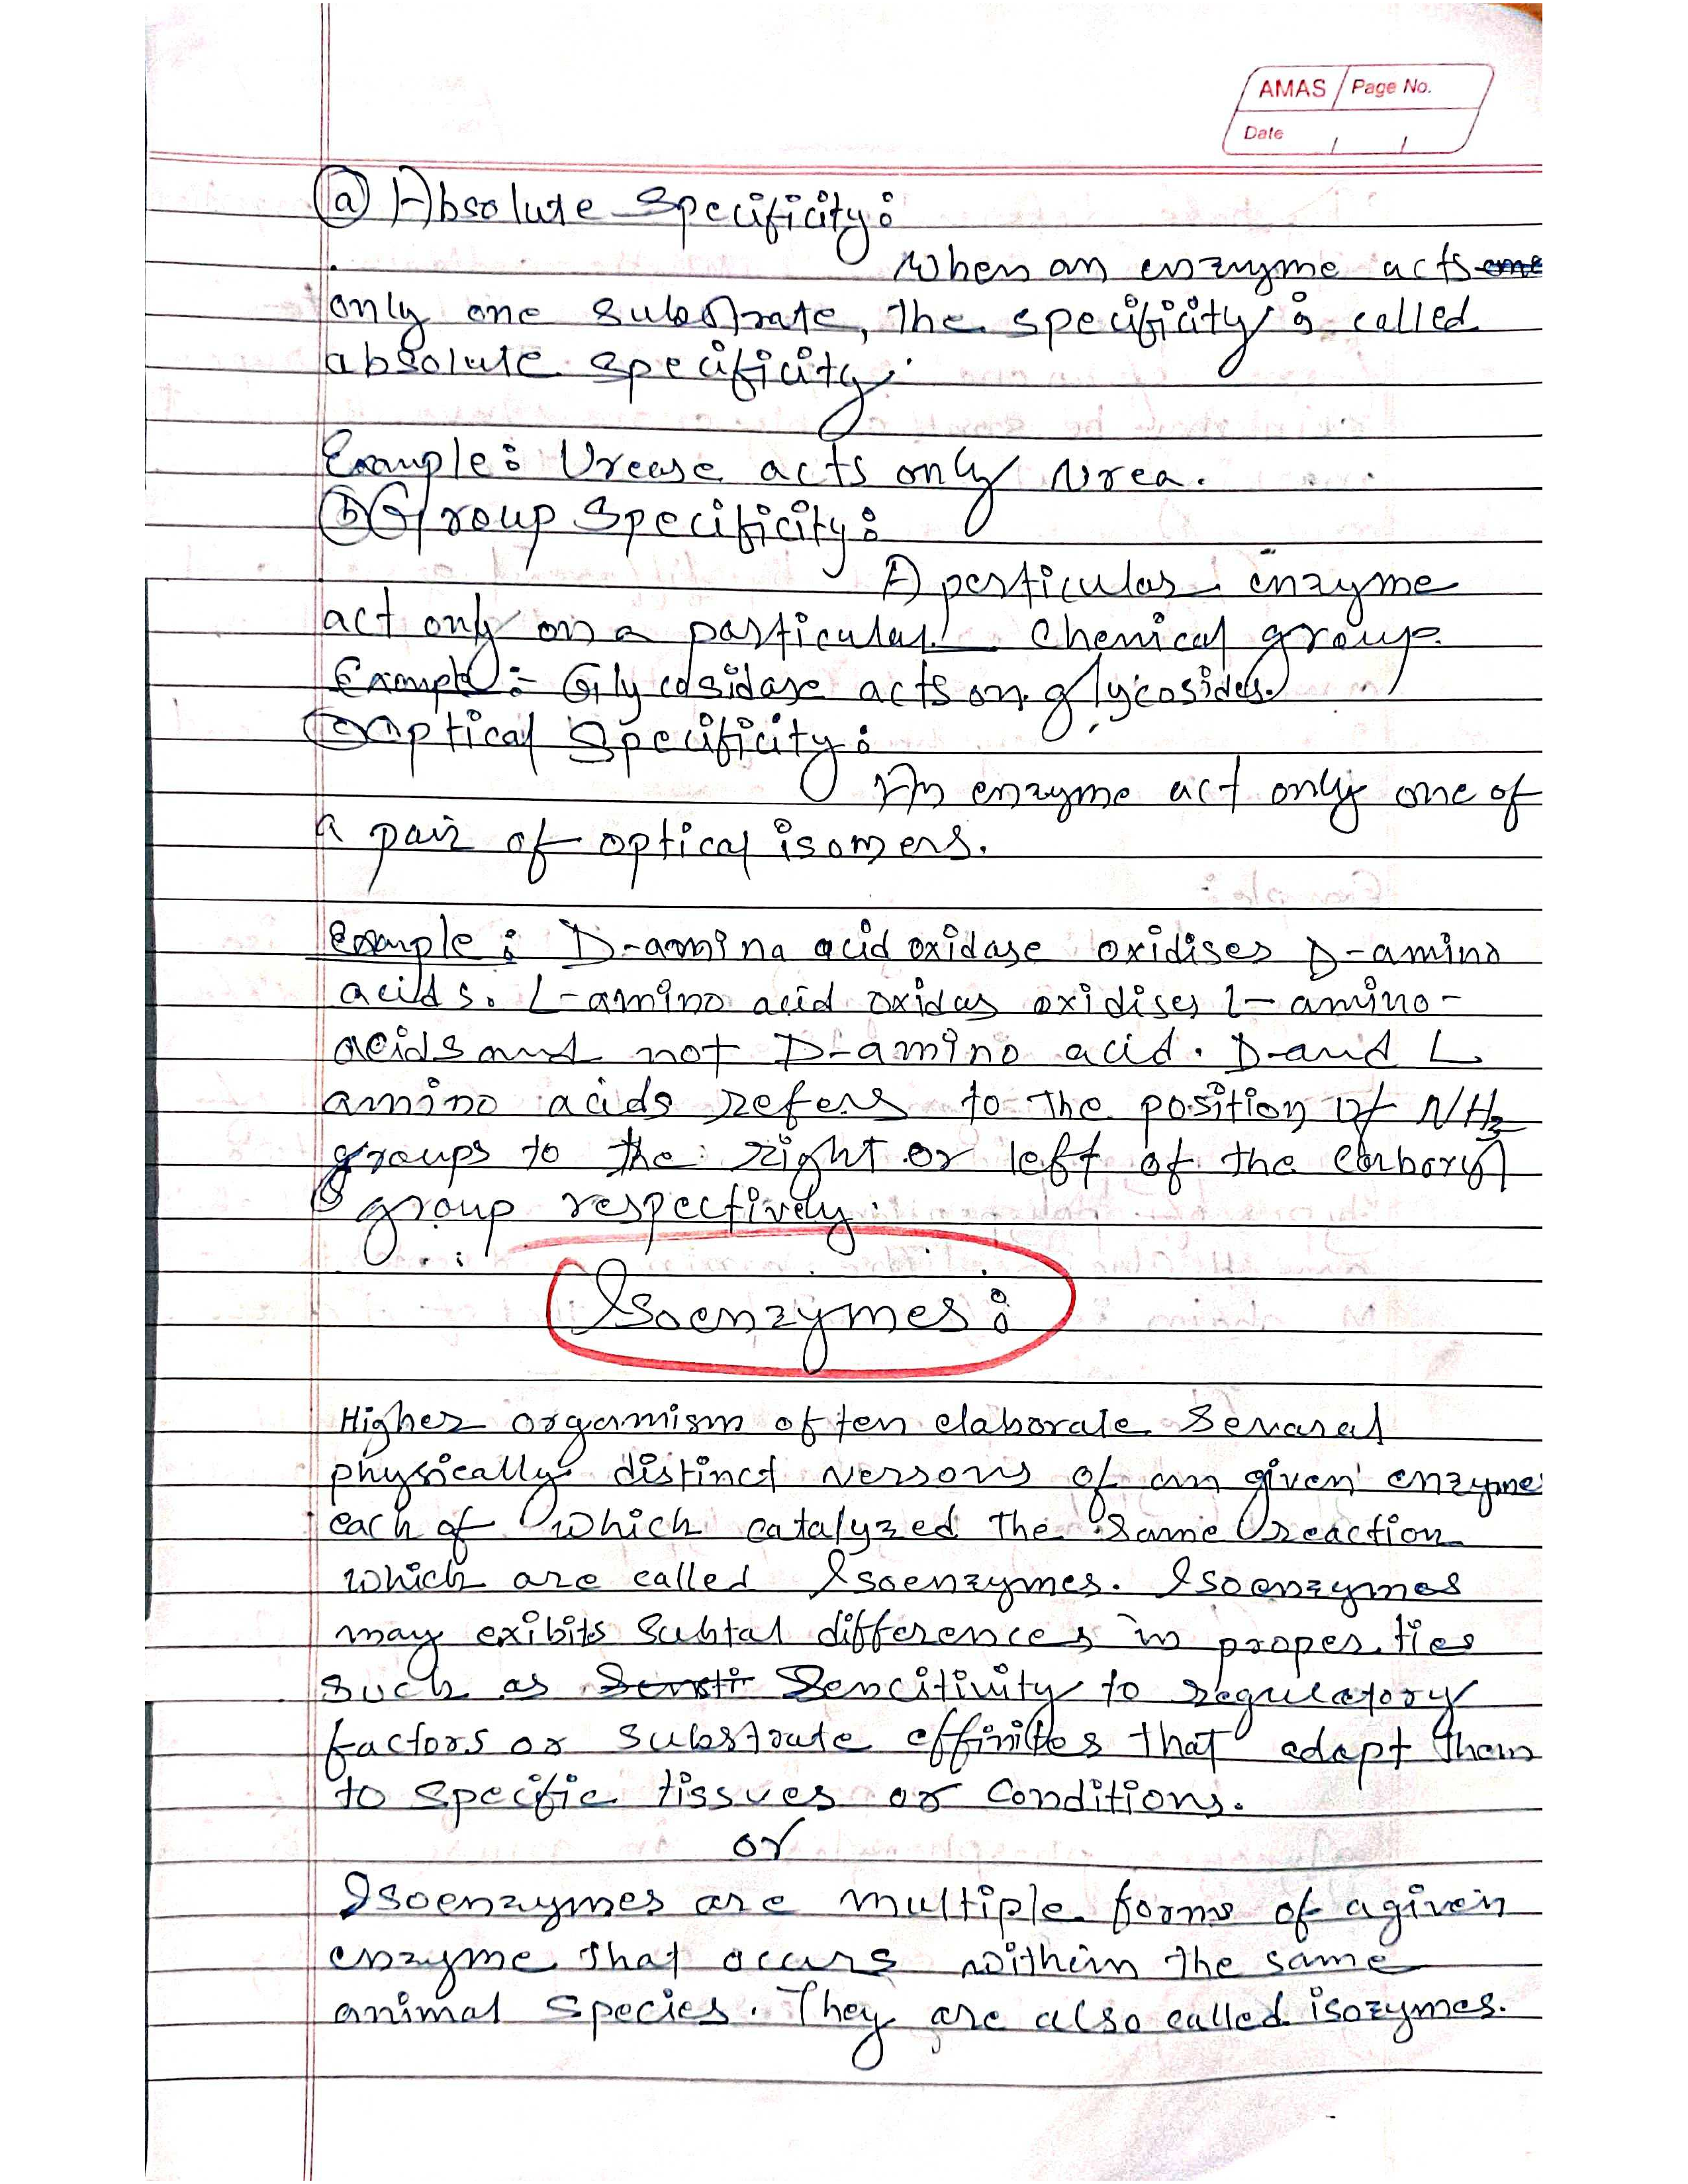 AMAS Page No.
Date / /
(a) Absolute Specificity:
When an enzyme acts one
only one substrate, the specificity is called
absolute specificity.
Example: Urease acts only Urea.
(b) Group Specificity:
A perticular enzyme
act only on a particular chemical group.
Example:- Glycosidase acts on glycosides.
(c) Optical Specificity:
An enzyme act only one of
a pair of optical isomers.
Example: D-amina acid oxidase oxidises D-amino
acids. L-amino acid oxidas oxidises l-amino-
acids and not D-amino acid. D-and L
amino acids refers to the position of NH3
groups to the right or left of the carboxyl
group respectively.
Isoenzymes:
Higher organism often elaborate Several
physically distinct versons of an given enzyme
each of which catalyzed the same reaction
which are called Isoenzymes. Isoenzymes
may exibits Subtal differences in properties
such as Sensti Sencitivity to regulatory
factors or substrate effinites that adapt them
to specific tissues or conditions.
or
Isoenzymes are multiple forms of a given
enzyme that occurs withein the same
animal species. They are also called isozymes.